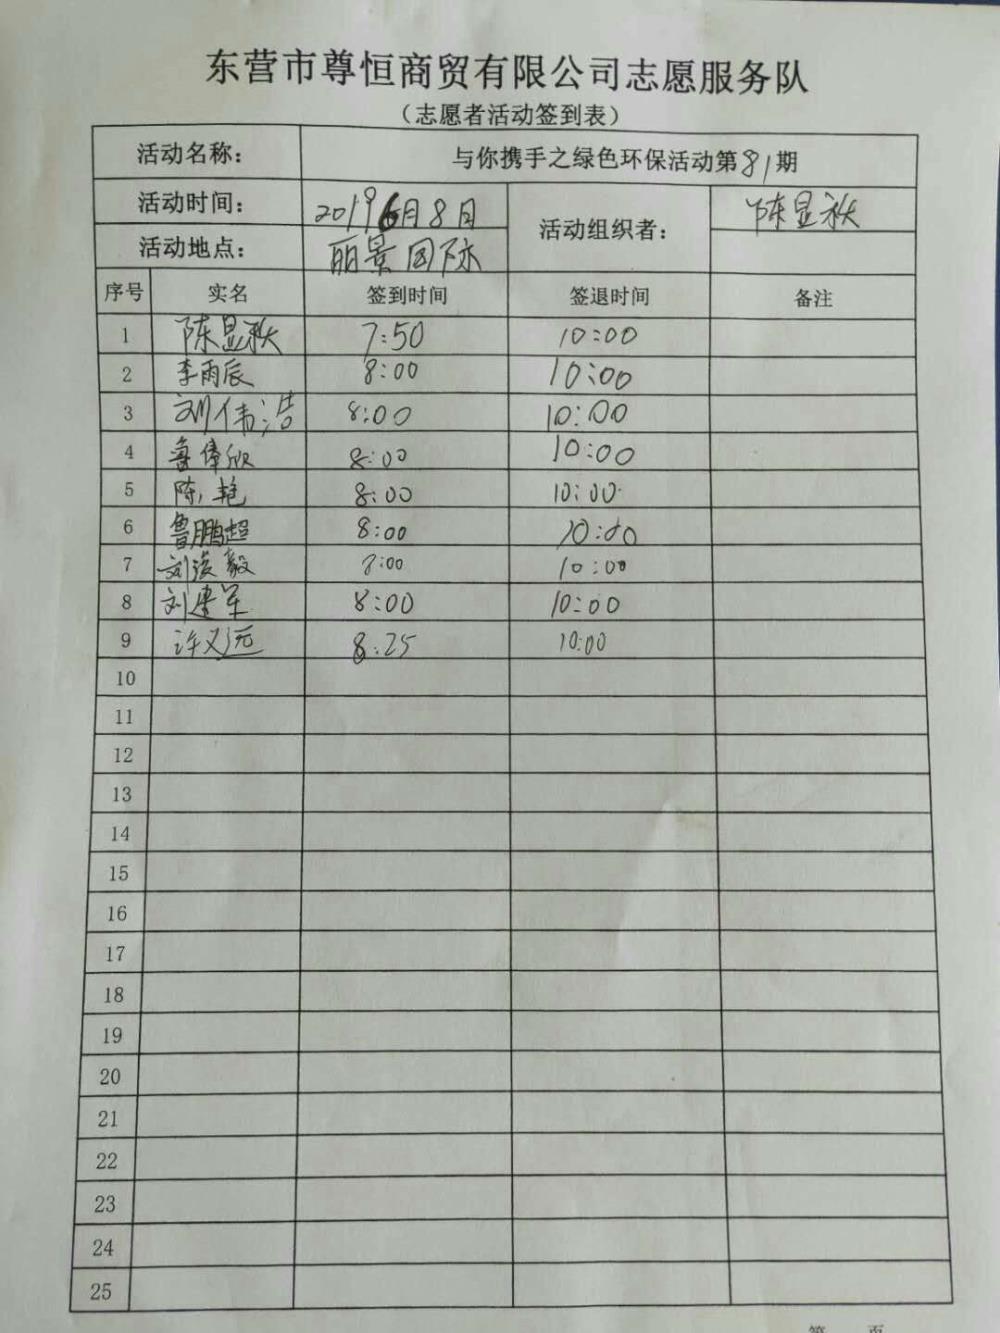 东营市尊恒商贸有限公司志愿服务队
（志愿者活动签到表）
活动名称： 与你携手之绿色环保活动第81期
活动时间： 2019 6月8日 活动组织者： 陈显秋
活动地点： 丽景国际
序号 实名 签到时间 签退时间 备注
1 陈显秋 7:50 10:00
2 李雨辰 8:00 10:00
3 刘伟浩 8:00 10:00
4 8:00 10:00
5 陈艳 8:00 10:00
6 鲁鹏超 8:00 10:00
7 8:00 10:00
8 刘建军 8:00 10:00
9 许又远 8:25 10:00
10
11
12
13
14
15
16
17
18
19
20
21
22
23
24
25
第 页